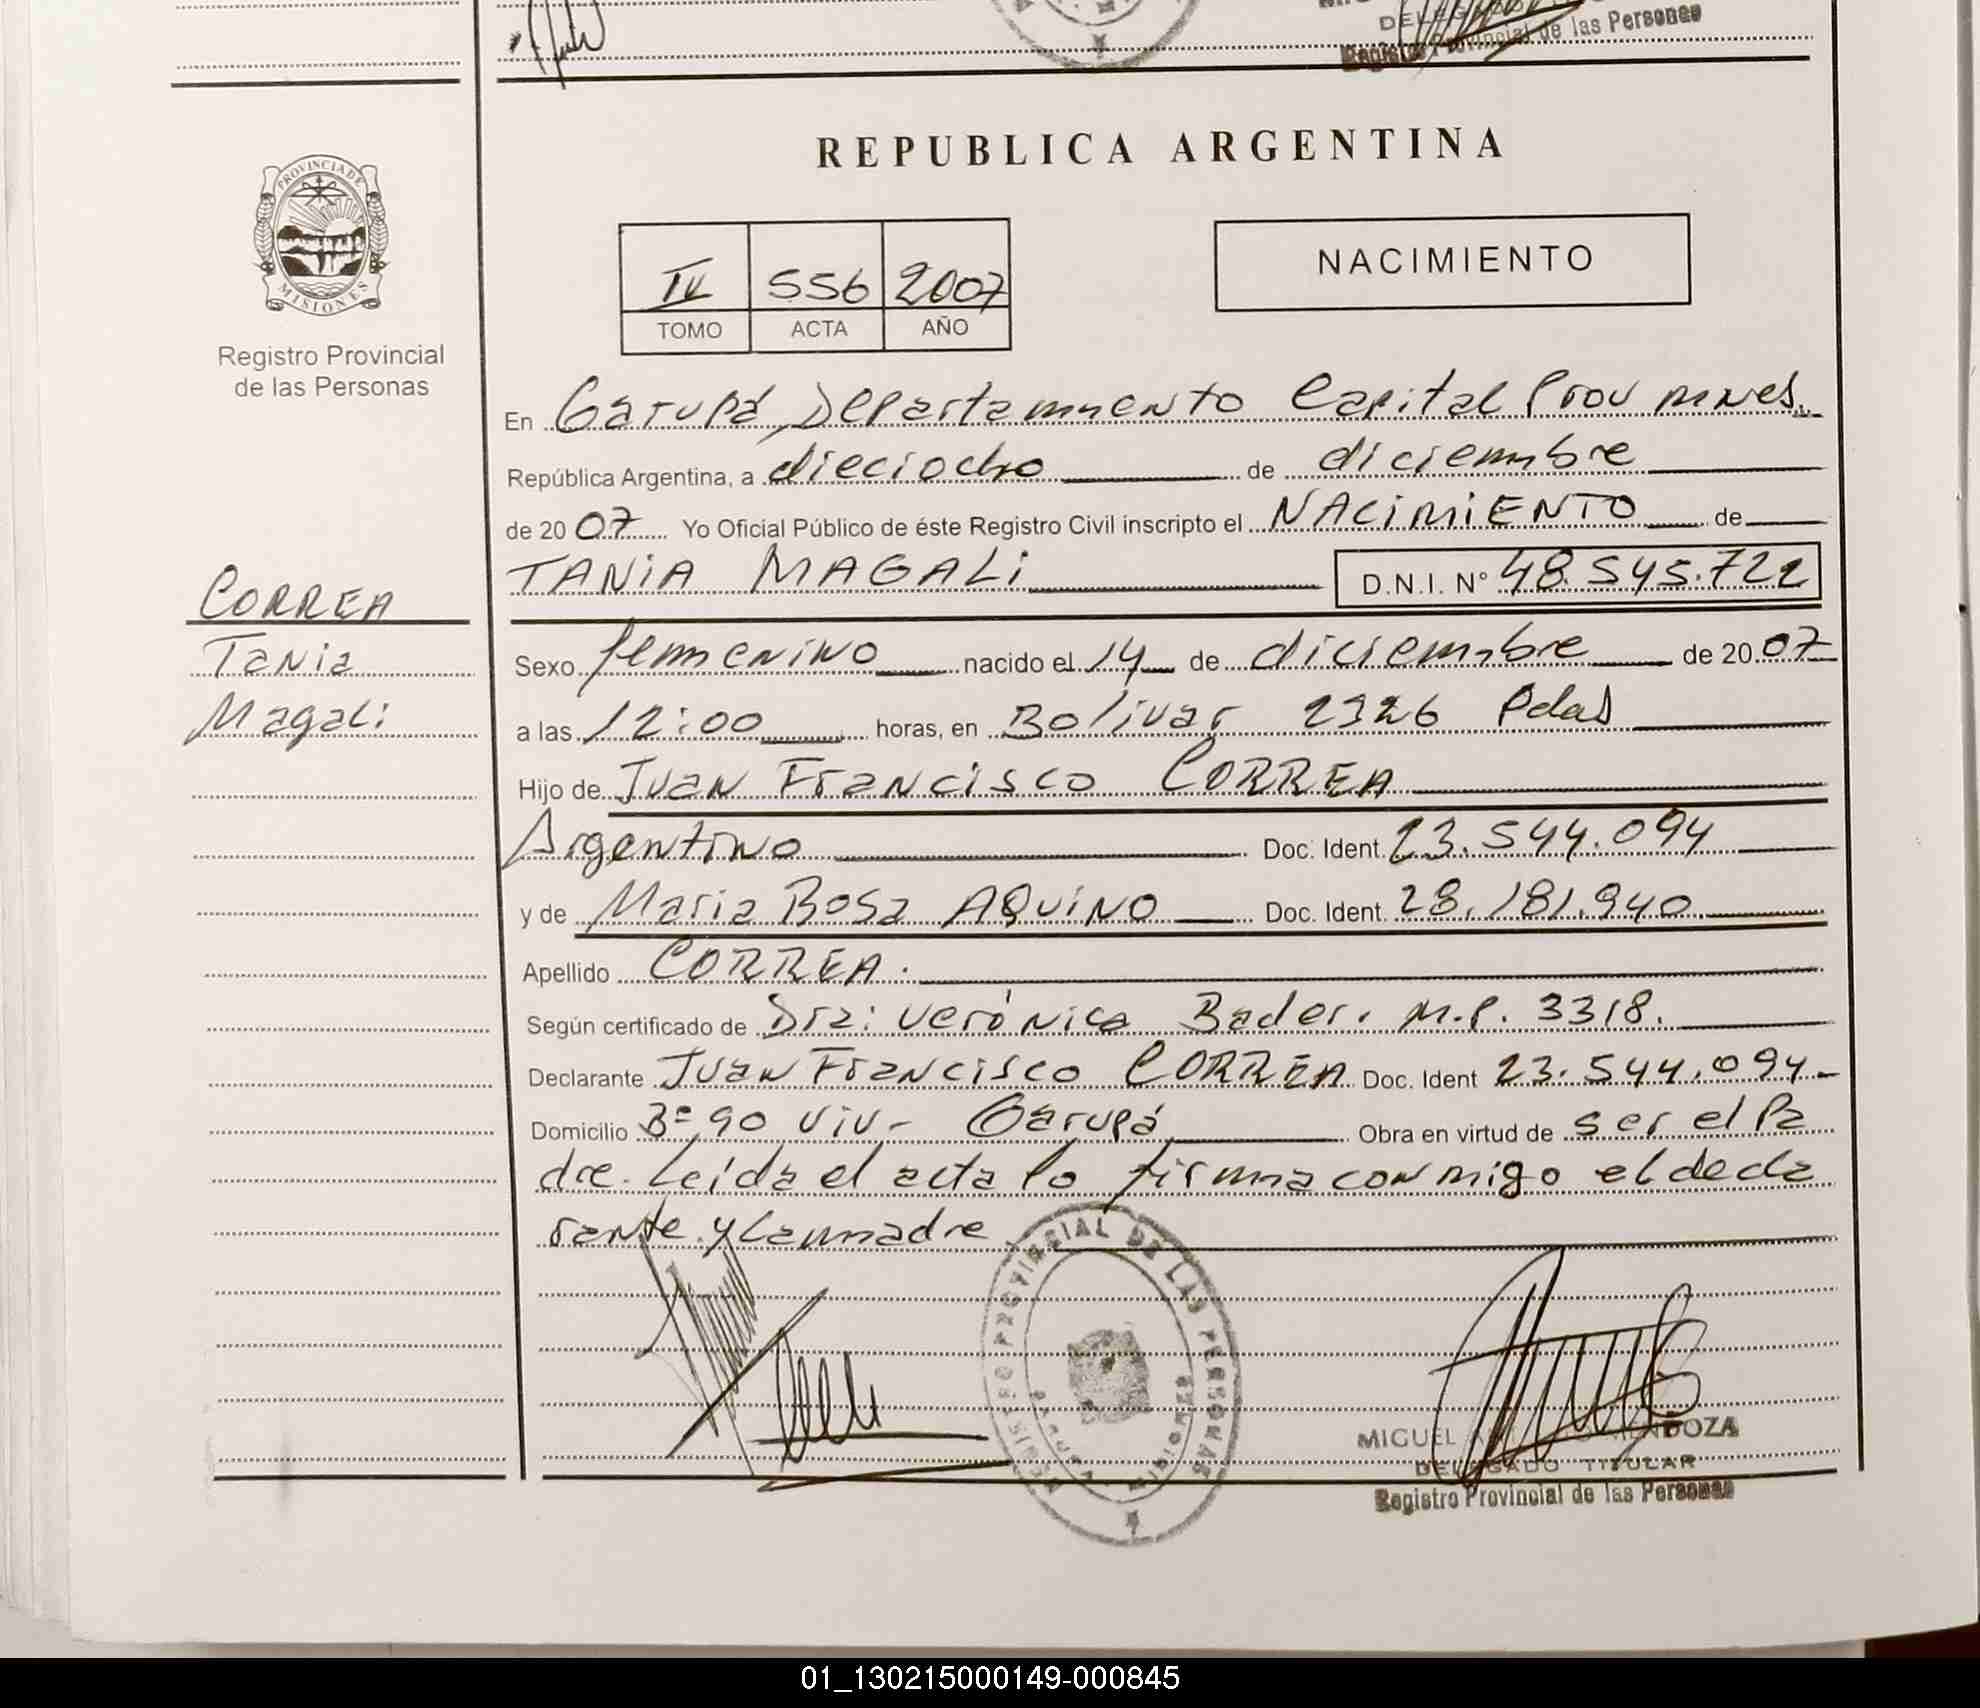 DELEGADO
Registro Provincial de las Personas
REPUBLICA ARGENTINA
PROVINCIA DE
MISIONES
Registro Provincial
de las Personas
IV 556 2007
TOMO ACTA AÑO
NACIMIENTO
En Garupá, Departamento Capital Prov
República Argentina, a dieciocho de diciembre
de 2007 Yo Oficial Público de éste Registro Civil inscripto el NACIMIENTO de
TANIA MAGALI D.N.I. Nº 48.545.722
CORREA
Tania
Magali
Sexo femenino nacido el 14 de diciembre de 2007
a las 12:00 horas, en Bolivar 2326 Pdas
Hijo de Juan Francisco CORREA
Argentino Doc. Ident. 23.544.094
y de Maria Rosa AQUINO Doc. Ident. 28.181.940
Apellido CORREA.
Según certificado de Dra: Verónica Bader. M.P. 3318.
Declarante Juan Francisco CORREA Doc. Ident 23.544.094-
Domicilio Bº 90 Viv- Garupá Obra en virtud de ser el Pa
dre. Leída el acta lo firma conmigo el decla
rante y la madre
REGISTRO PROVINCIAL DE LAS PERSONAS
MIGUEL MENDOZA
DELEGADO TITULAR
Registro Provincial de las Personas
01_130215000149-000845